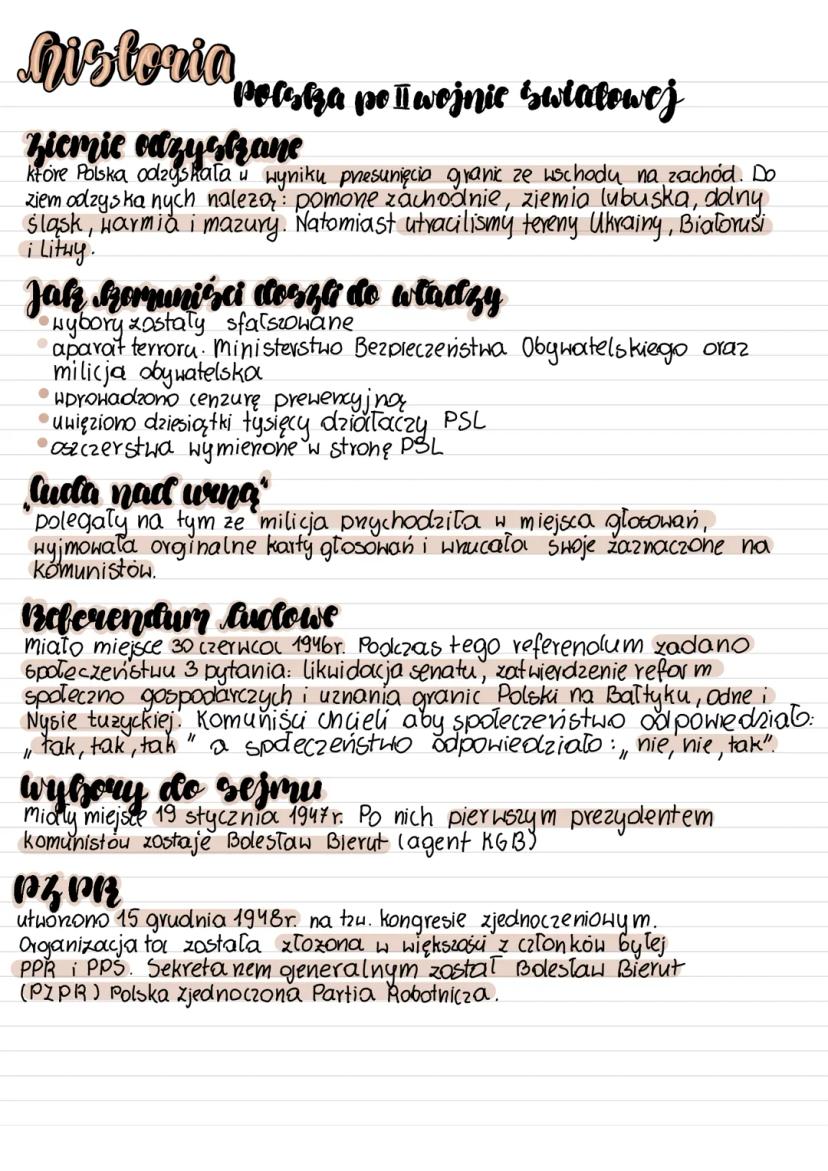 historia
Polska po II wojnie światowej
Ziemie odzyskane
które Polska odzyskała w wyniku przesunięcia granic ze wschodu na zachód. Do
ziem odzyskanych należą: pomorze zachodnie, ziemia lubuska, dolny
śląsk, warmia i mazury. Natomiast utraciliśmy tereny Ukrainy, Białorusi
i Litwy.
Jak komuniści doszli do władzy
• wybory zostały sfałszowane
• aparat terroru. Ministerstwo Bezpieczeństwa Obywatelskiego oraz
milicja obywatelska
• wprowadzono cenzurę prewencyjną
• uwięziono dziesiątki tysięcy działaczy PSL
• oszczerstwa wymierone w stronę PSL
„Cuda nad urną"
polegały na tym że milicja przychodziła w miejsca głosowań,
wyjmowała orginalne karty głosowań i wrzucała swoje zaznaczone na
komunistów.
Referendum Ludowe
miało miejsce 30 czerwca 1946r. Podczas tego referendum zadano
społeczeństwu 3 pytania: likwidacja senatu, zatwierdzenie reform
społeczno gospodarczych i uznania granic Polski na Bałtyku, Odrze i
Nysie Łużyckiej. Komuniści chcieli aby społeczeństwo odpowiedziało:
„tak, tak, tak" a społeczeństwo odpowiedziało: „nie, nie, tak".
Wybory do sejmu
miały miejsce 19 stycznia 1947r. Po nich pierwszym prezydentem
komunistów zostaje Bolesław Bierut (agent KGB)
PZPR
utworzono 15 grudnia 1948r. na tzw. kongresie zjednoczeniowym.
Organizacja ta została złożona w większości z członków byłej
PPR i PPS. Sekretarzem generalnym został Bolesław Bierut
(PZPR) Polska Zjednoczona Partia Robotnicza.